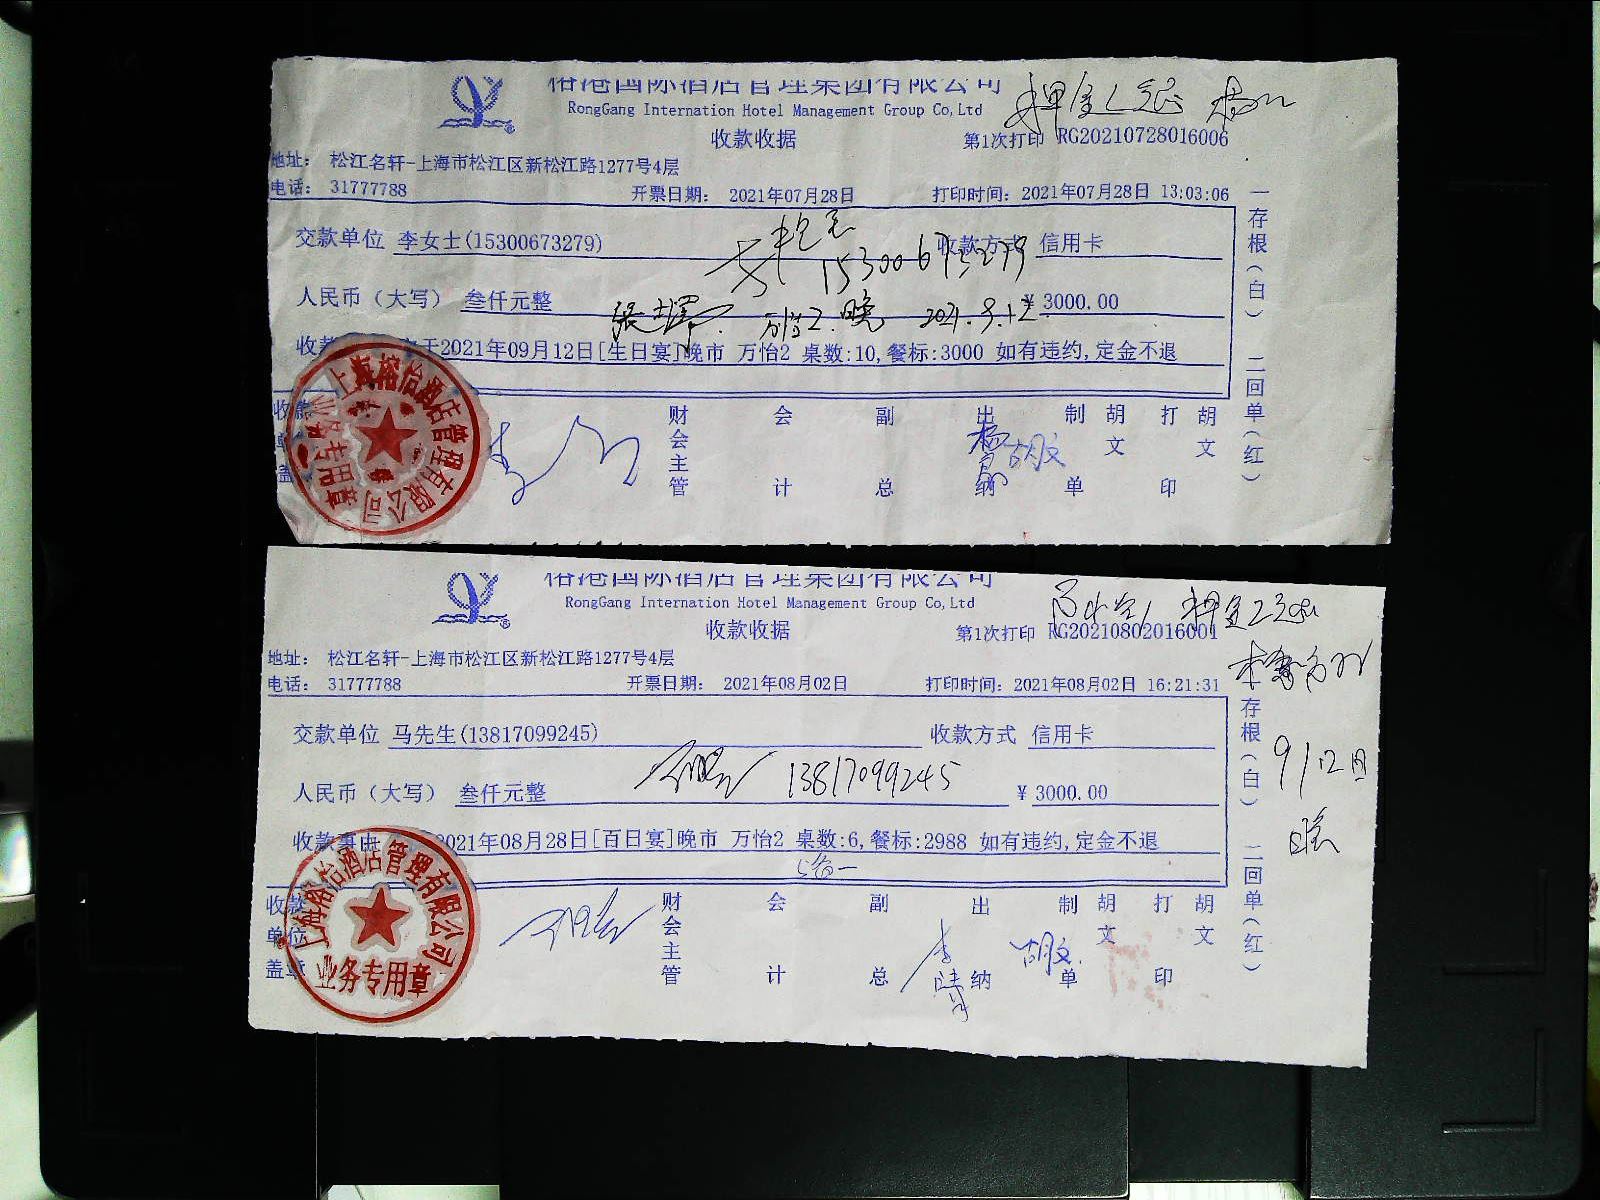 榕港国际酒店管理集团有限公司
RongGang Internation Hotel Management Group Co,Ltd
收款收据
第1次打印 RG20210728016006
地址： 松江名轩-上海市松江区新松江路1277号4层
电话： 31777788 开票日期： 2021年07月28日 打印时间：2021年07月28日 13:03:06
交款单位 李女士(15300673279) 收款方式 信用卡
15300673279
人民币（大写） 叁仟元整 ¥ 3000.00
万怡2 晚 2021.9.12
收款 于2021年09月12日[生日宴]晚市 万怡2 桌数:10,餐标:3000 如有违约,定金不退
收款单 盖 财会主管 会计 副总 出纳 制单 胡文 打印 胡文
胡文
一存根（白） 二回单（红）
上海榕怡酒店管理有限公司
业务专用章
榕港国际酒店管理集团有限公司
RongGang Internation Hotel Management Group Co,Ltd
收款收据
第1次打印 RG20210802016001
押金已退
地址： 松江名轩-上海市松江区新松江路1277号4层
电话： 31777788 开票日期： 2021年08月02日 打印时间：2021年08月02日 16:21:31
交款单位 马先生(13817099245) 收款方式 信用卡
13817099245
人民币（大写） 叁仟元整 ¥ 3000.00
收款事由 2021年08月28日[百日宴]晚市 万怡2 桌数:6,餐标:2988 如有违约,定金不退
收款单位盖章 财会主管 会计 副总 出纳 制单 胡文 打印 胡文
李晴 胡文
一存根（白） 二回单（红）
9/12日
晚
上海榕怡酒店管理有限公司
业务专用章